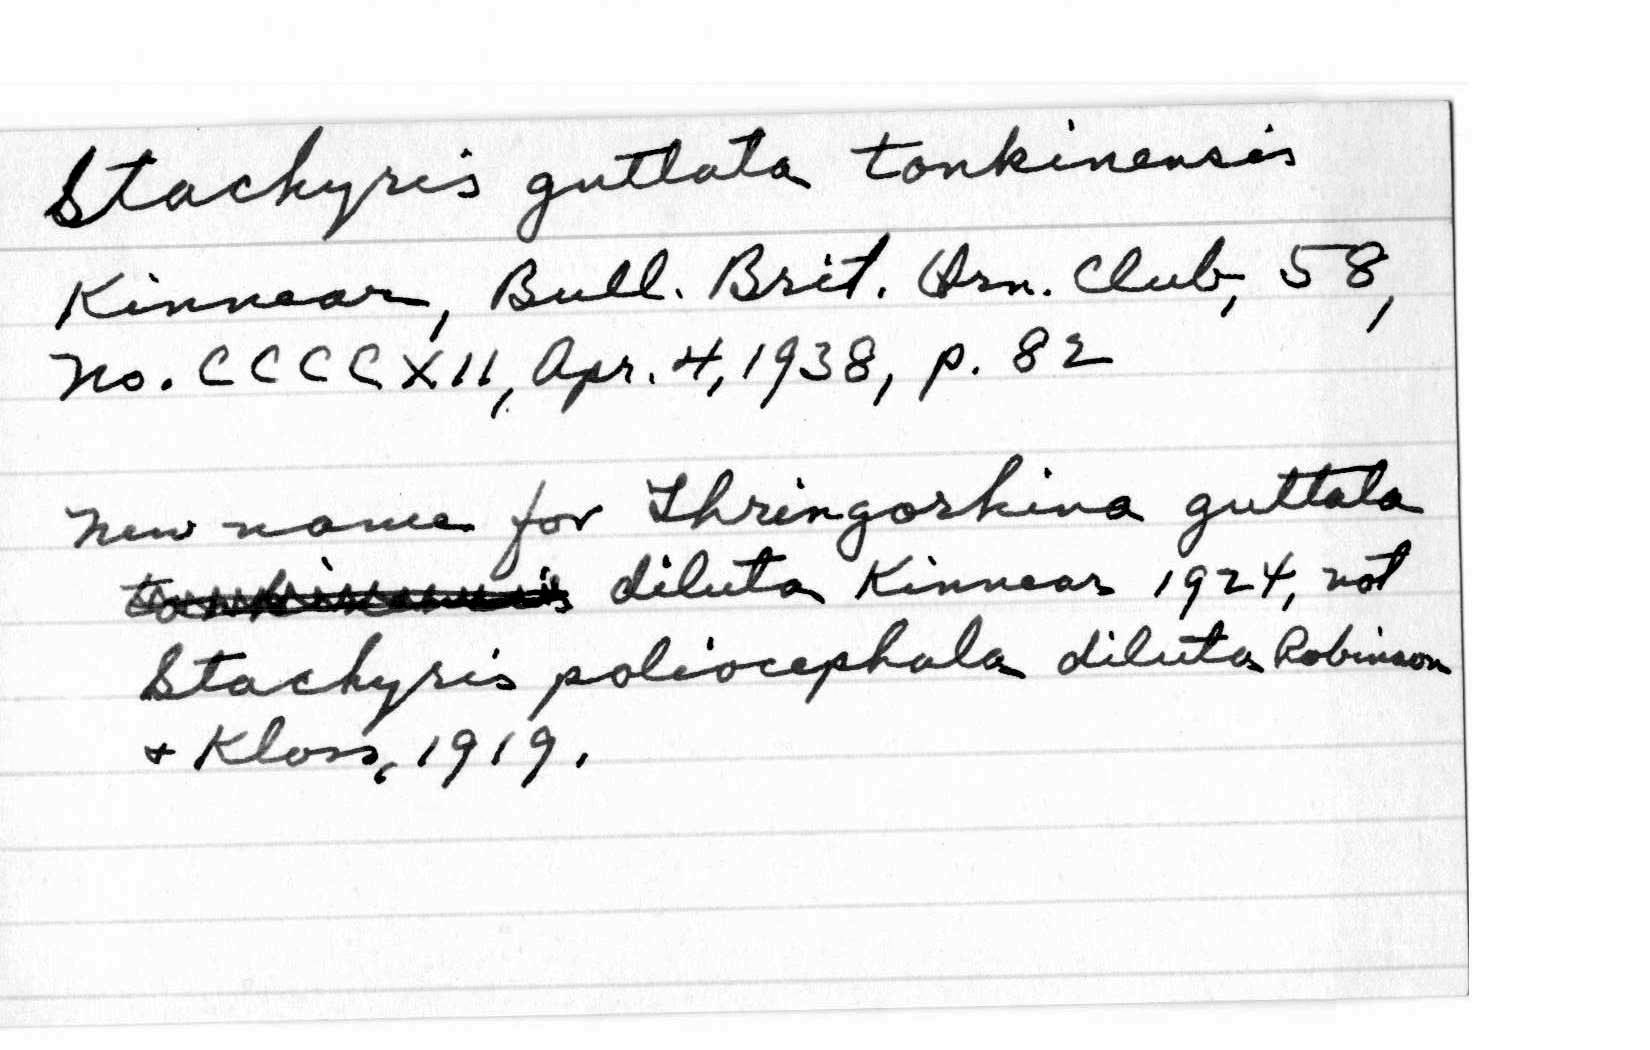 Stachyris guttata tonkinensis
Kinnear, Bull. Brit. Orn. Club, 58,
No. CCCCXII, Apr. 4, 1938, p. 82
New name for Thringorhina guttata
diluta Kinnear 1924, not
Stachyris poliocephala diluta Robinson
+ Kloss, 1919.